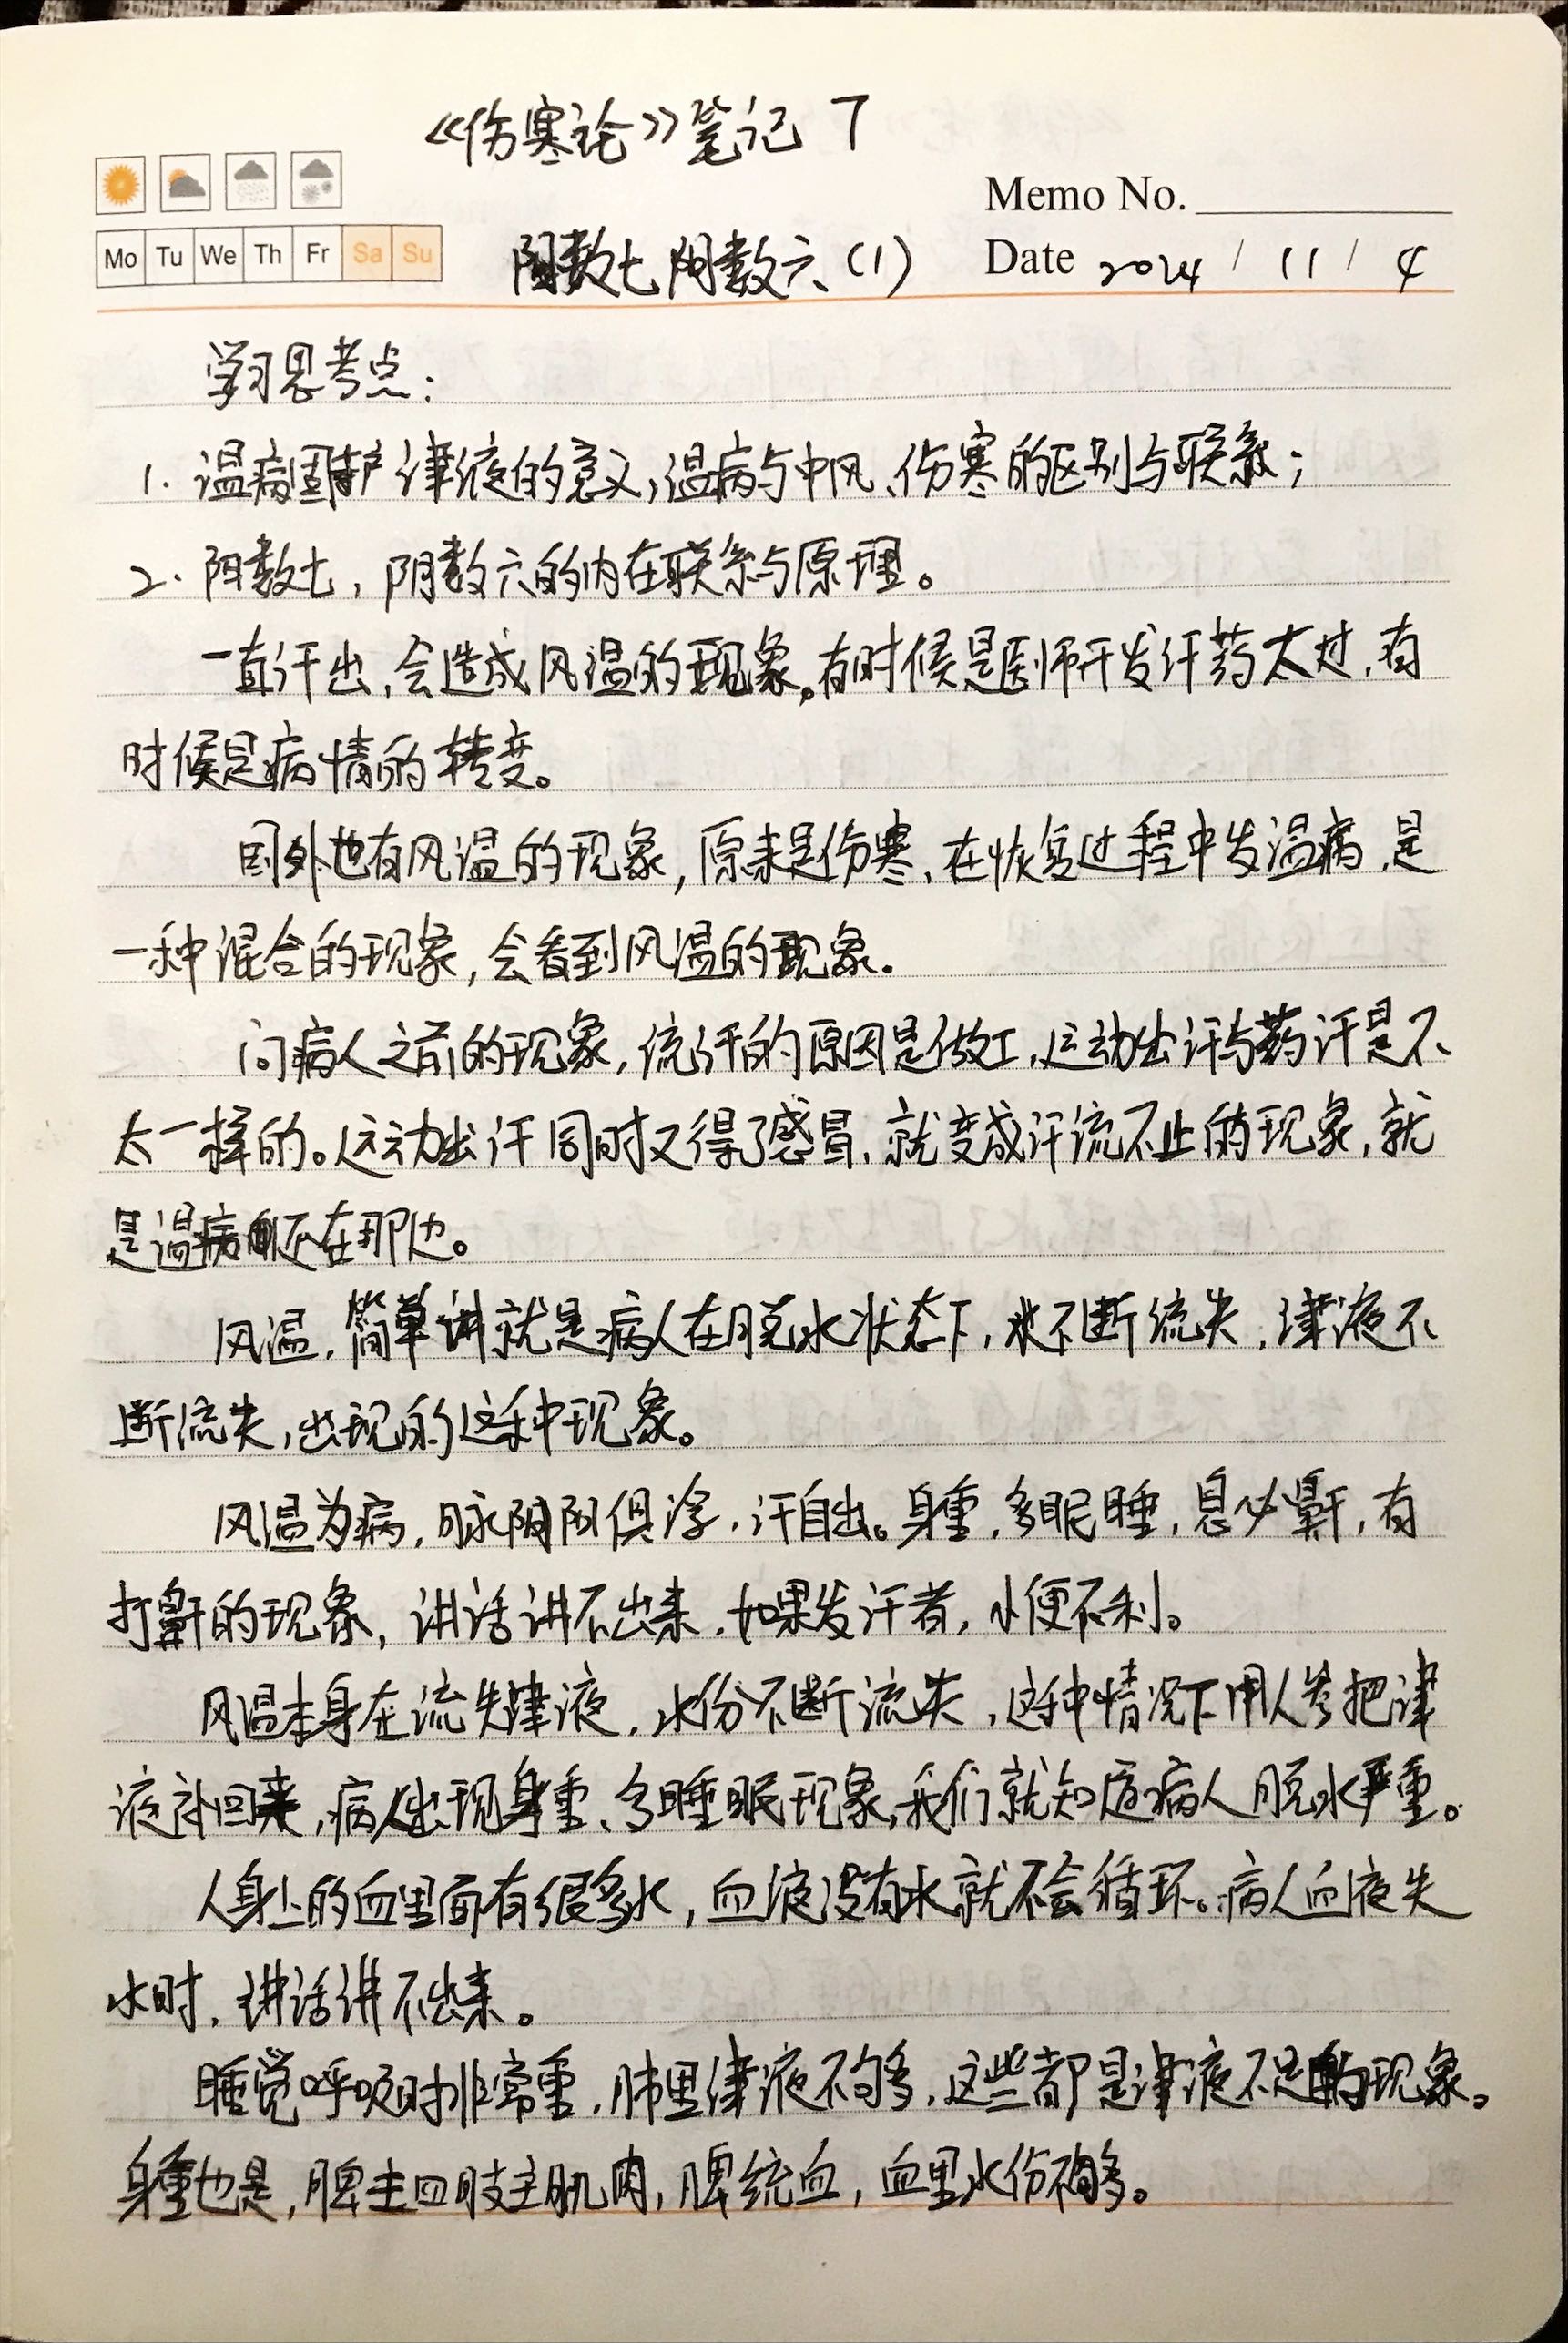 《伤寒论》笔记 7
Memo No.
Mo Tu We Th Fr Sa Su
阳数七阴数六(1)
Date 2024 / 11 / 4
学习思考点:
1. 温病固护津液的意义,温病与中风、伤寒的区别与联系;
2. 阳数七,阴数六的内在联系与原理。
一直汗出,会造成风温的现象。有时候是医师开发汗药太过,有
时候是病情的转变。
国外也有风温的现象,原来是伤寒,在恢复过程中发温病,是
一种混合的现象,会看到风温的现象.
问病人之前的现象,流汗的原因是做工,运动出汗与药汗是不
太一样的。运动出汗同时又得了感冒,就变成汗流不止的现象,就
是温病还在那边。
风温,简单讲就是病人在脱水状态下,水不断流失,津液不
断流失,出现的这种现象。
风温为病,脉阴阳俱浮,汗自出。身重,多眠睡,息必鼾,有
打鼾的现象,讲话讲不出来,如果发汗者,小便不利。
风温本身在流失津液,水份不断流失,这种情况下用人参把津
液补回来,病人出现身重、多睡眠现象,我们就知道病人脱水严重。
人身上的血里面有很多水,血液没有水就不会循环。病人血液失
水时,讲话讲不出来。
睡觉呼吸时非常重,肺里津液不够多,这些都是津液不足的现象。
身重也是,脾主四肢主肌肉,脾统血,血里水份不够多。